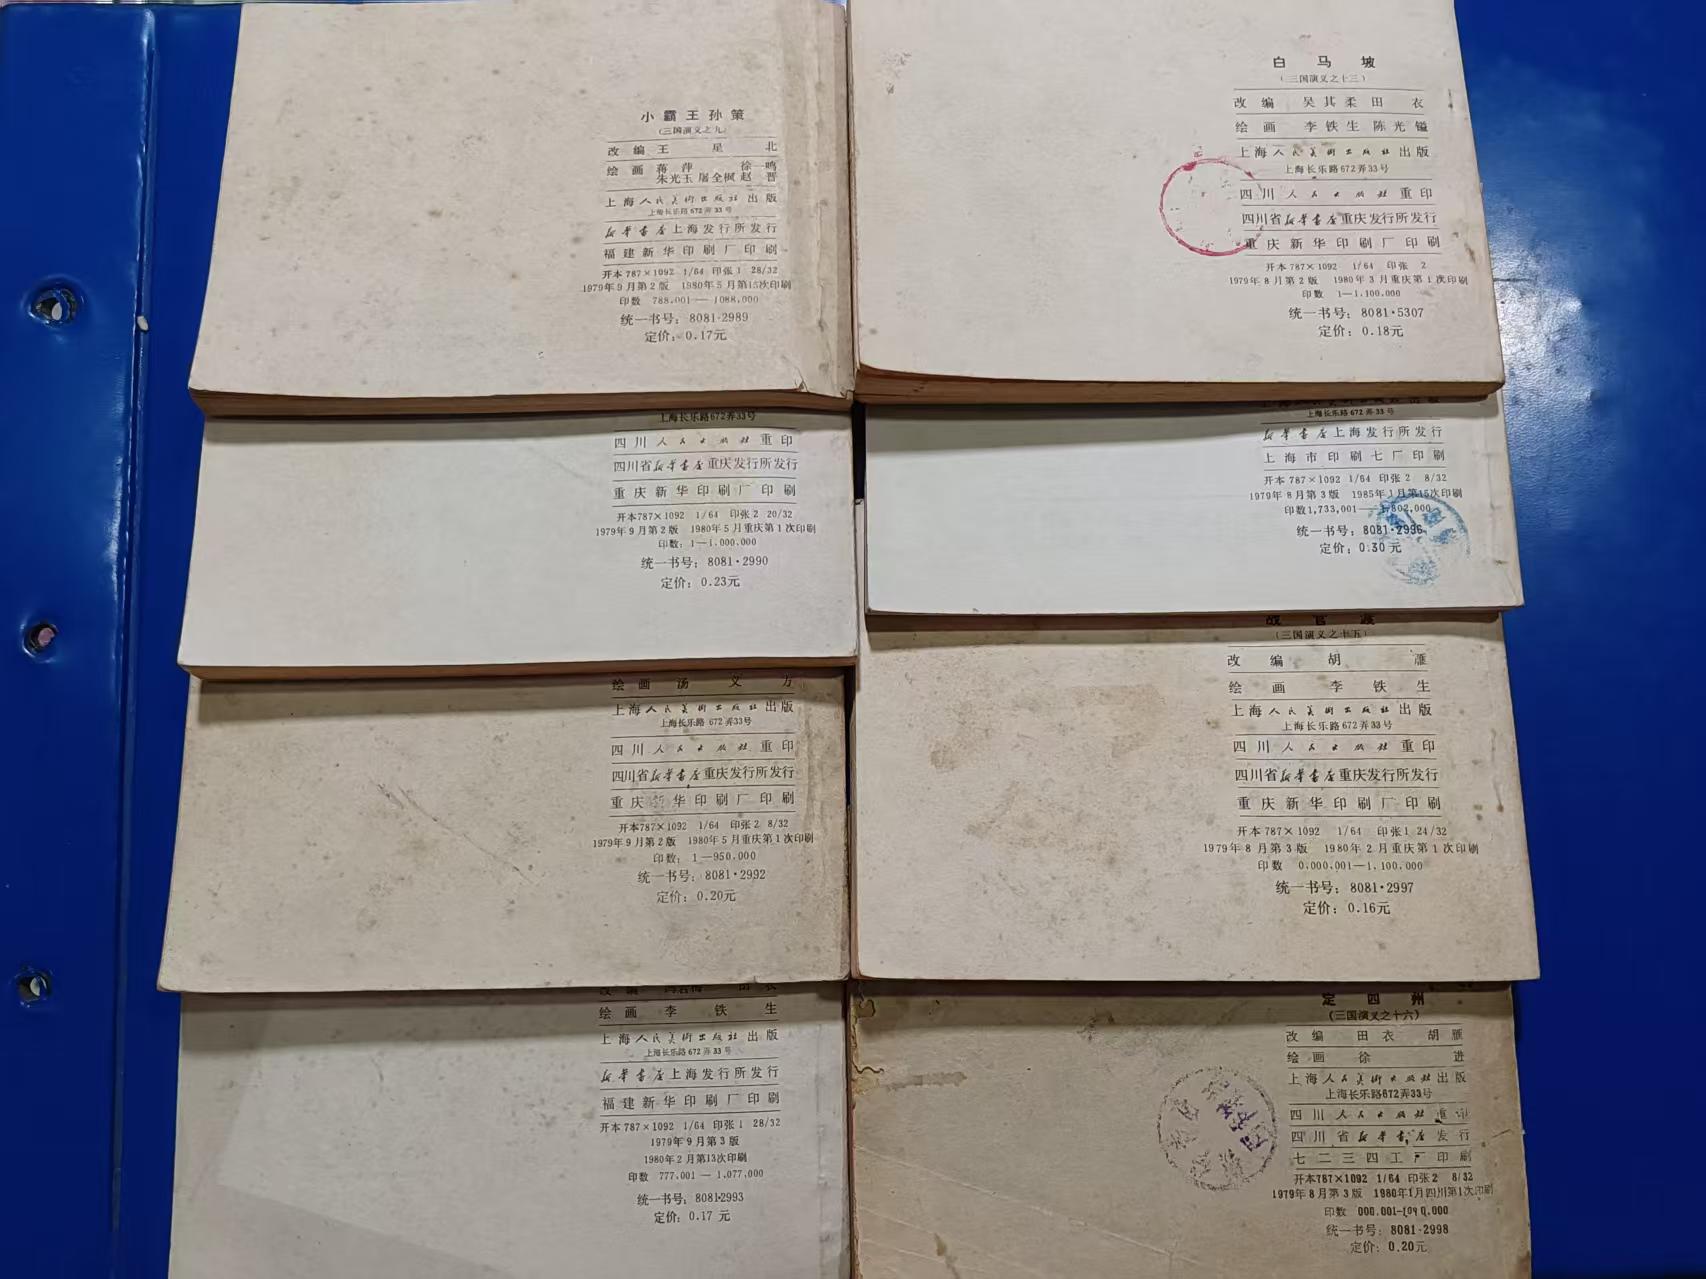 小霸王孙策
(三国演义之九)
改编 王星北
绘画 蒋萍 徐一鸣
朱光玉 屠全枫 赵晋
上海人民美术出版社出版
上海长乐路672弄33号
新华书店上海发行所发行
福建新华印刷厂印刷
开本787×1092 1/64 印张1 28/32
1979年9月第2版 1980年5月第15次印刷
印数 788,001—1088,000
统一书号：8081·2989
定价：0.17元
上海长乐路672弄33号
四川人民出版社重印
四川省新华书店重庆发行所发行
重庆新华印刷厂印刷
开本787×1092 1/64 印张2 20/32
1979年9月第2版 1980年5月重庆第1次印刷
印数：1—1.000.000
统一书号：8081·2990
定价：0.23元
绘画 汤义方
上海人民美术出版社出版
上海长乐路672弄33号
四川人民出版社重印
四川省新华书店重庆发行所发行
重庆新华印刷厂印刷
开本787×1092 1/64 印张2 8/32
1979年9月第2版 1980年5月重庆第1次印刷
印数：1—950.000
统一书号：8081·2992
定价：0.20元
绘画 李铁生
上海人民美术出版社出版
上海长乐路672弄33号
新华书店上海发行所发行
福建新华印刷厂印刷
开本787×1092 1/64 印张1 28/32
1979年9月第3版
1980年2月第13次印刷
印数 777.001—1.077.000
统一书号：8081·2993
定价：0.17元
白马坡
(三国演义之十三)
改编 吴其柔 田衣
绘画 李铁生 陈光镒
上海人民美术出版社出版
上海长乐路672弄33号
四川人民出版社重印
四川省新华书店重庆发行所发行
重庆新华印刷厂印刷
开本787×1092 1/64 印张2
1979年8月第2版 1980年3月重庆第1次印刷
印数 1—1.100.000
统一书号：8081·5307
定价：0.18元
上海长乐路672弄33号
新华书店上海发行所发行
上海市印刷七厂印刷
开本787×1092 1/64 印张2 8/32
1979年8月第3版 1985年1月第15次印刷
印数1,733,001—1,802,000
统一书号：8081·2996
定价：0.30元
战官渡
(三国演义之十五)
改编 胡雁
绘画 李铁生
上海人民美术出版社出版
上海长乐路672弄33号
四川人民出版社重印
四川省新华书店重庆发行所发行
重庆新华印刷厂印刷
开本787×1092 1/64 印张1 24/32
1979年8月第3版 1980年2月重庆第1次印刷
印数 0,000,001—1,100,000
统一书号：8081·2997
定价：0.16元
定四州
(三国演义之十六)
改编 田衣 胡雁
绘画 徐进
上海人民美术出版社出版
上海长乐路672弄33号
四川人民出版社重印
四川省新华书店发行
七二三四工厂印刷
开本787×1092 1/64 印张2 8/32
1979年8月第3版 1980年1月四川第1次印刷
印数 000.001-1090.000
统一书号：8081·2998
定价：0.20元